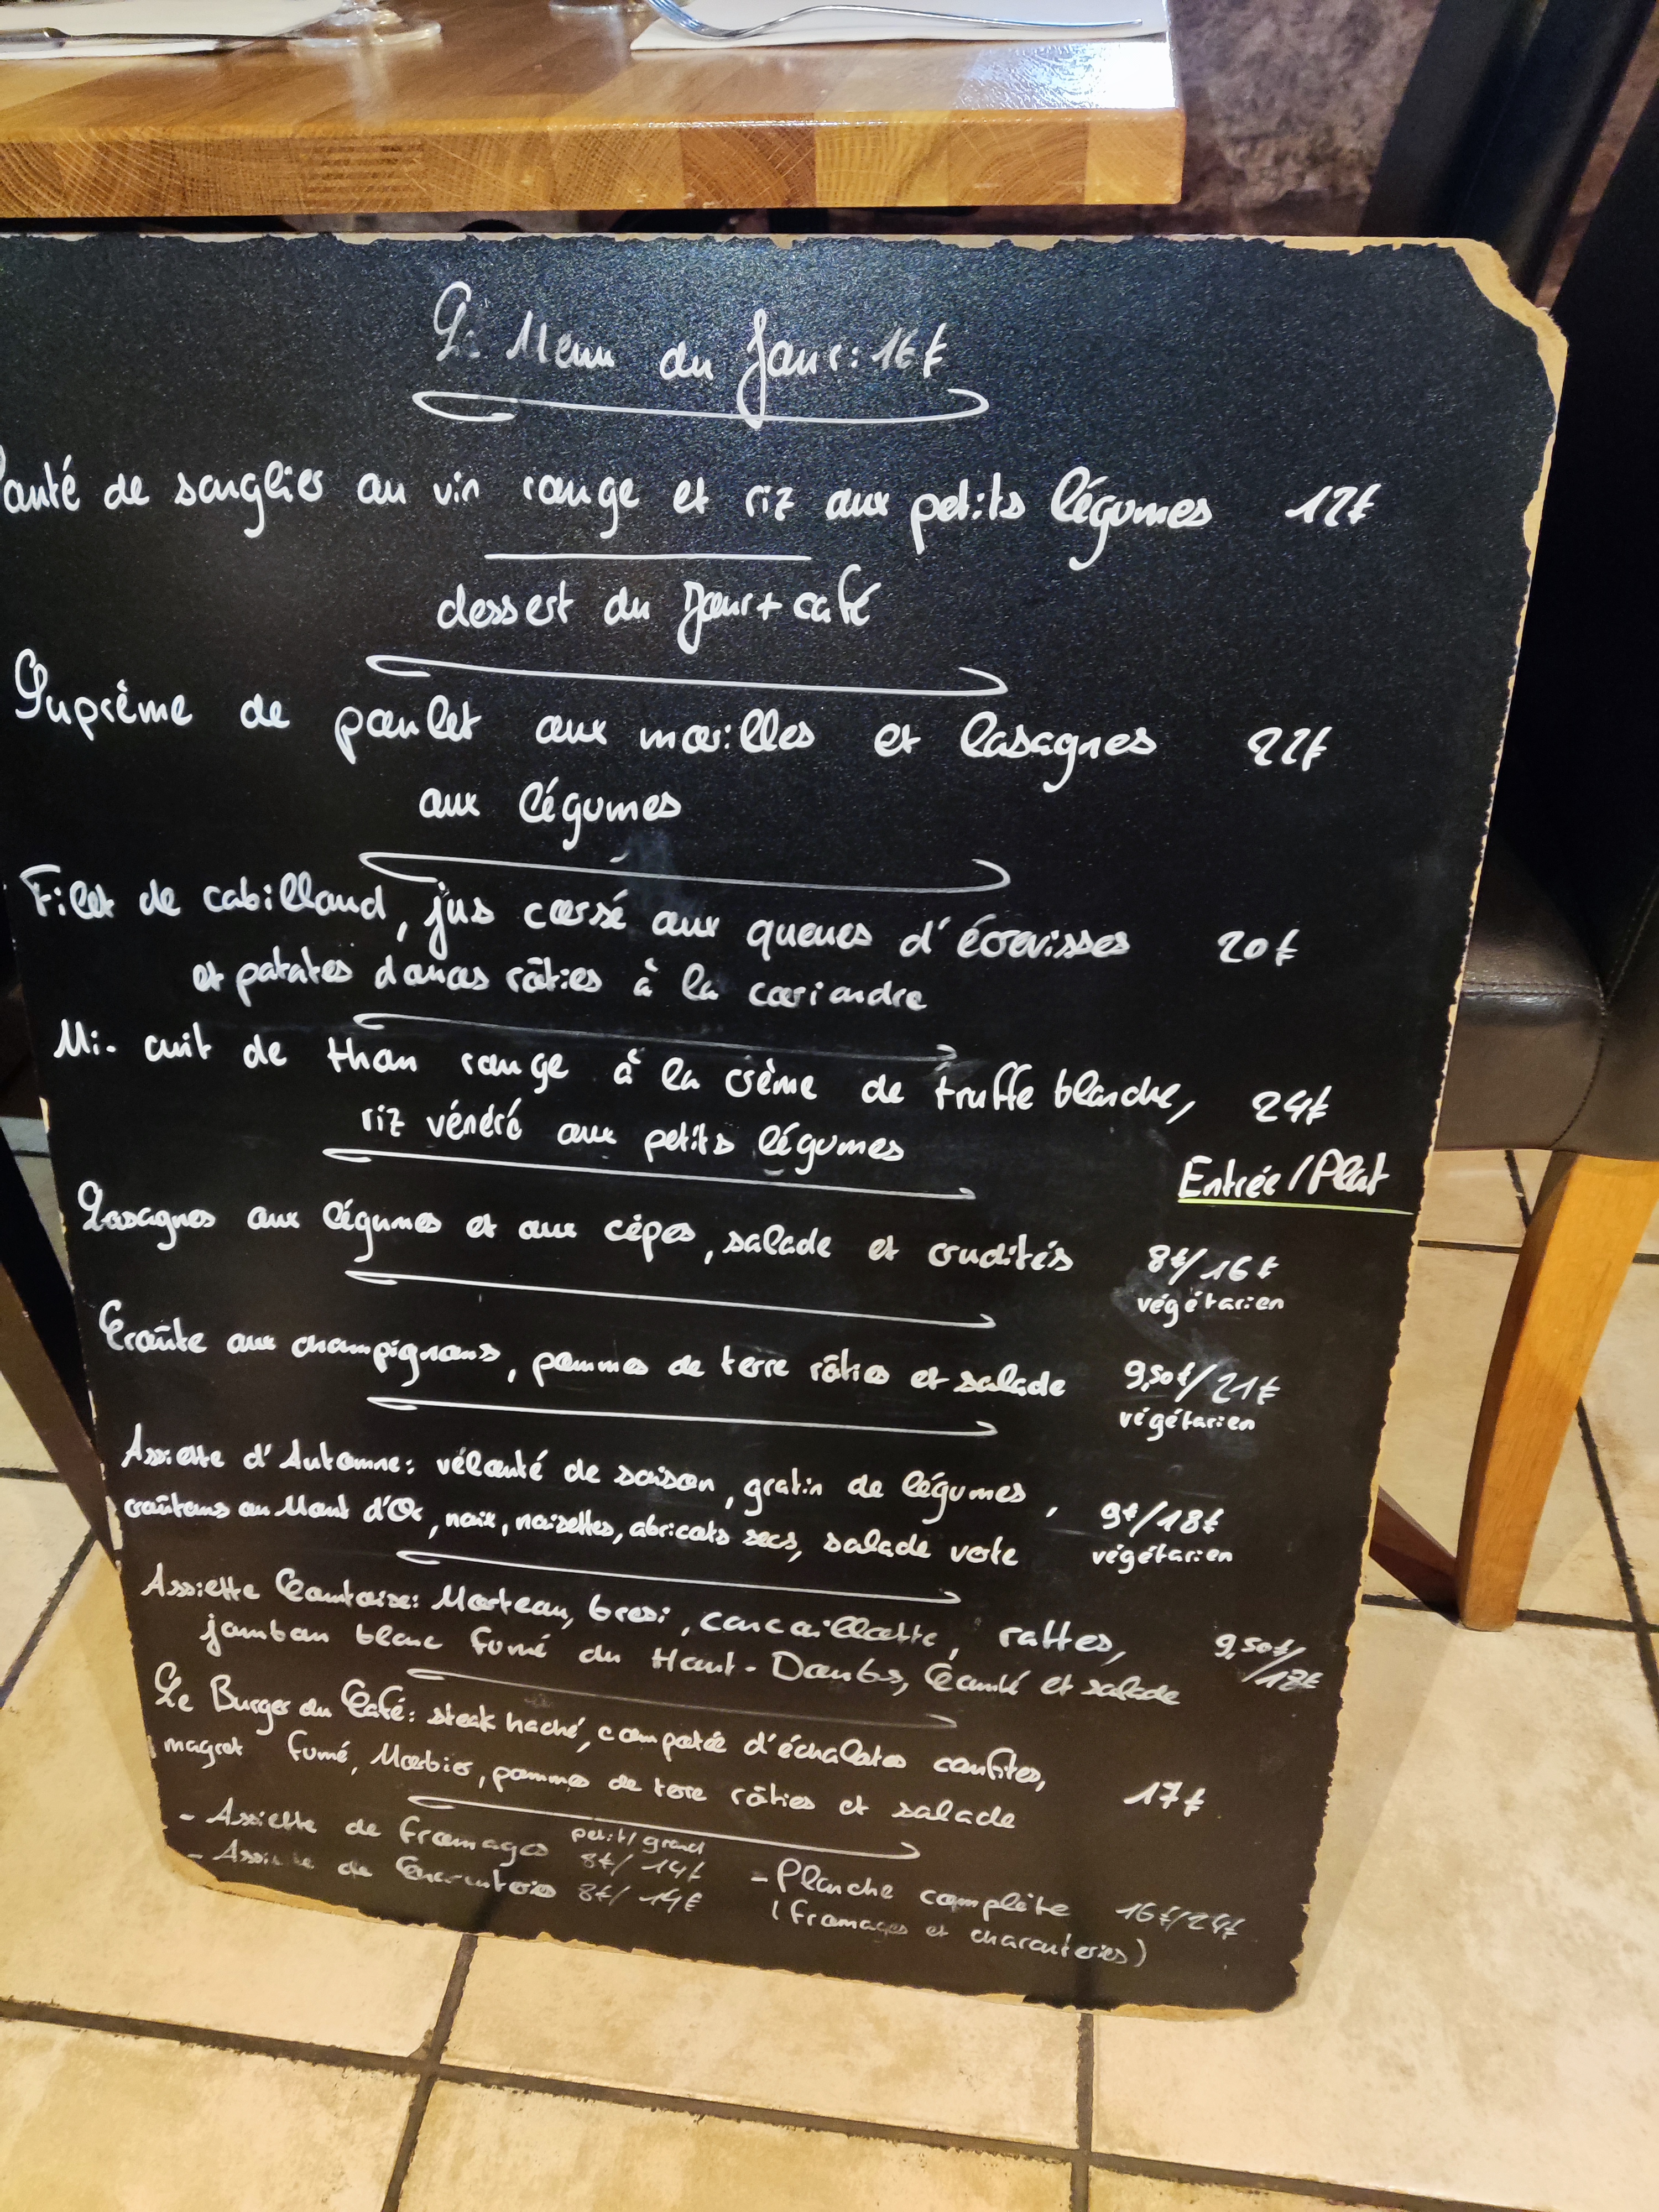 Le Menu du Jour: 16€
Sauté de sanglier au vin rouge et riz aux petits légumes 12€
dessert du Jour + café
Suprême de poulet aux morilles et lasagnes 22€
aux légumes
Filet de cabillaud, jus corsé aux queues d'écrevisses 20€
et patates douces rôties à la coriandre
Mi-cuit de thon rouge à la crème de truffe blanche, 24€
riz vénéré aux petits légumes
Entrée/Plat
Lasagnes aux légumes et aux cèpes, salade et crudités 8€/16€
végétarien
Croûte aux champignons, pommes de terre rôties et salade 9,50€/21€
végétarien
Assiette d'Automne: vélouté de saison, gratin de légumes, 9€/18€
croûtons au Mont d'Or, noix, noisettes, abricots secs, salade verte végétarien
Assiette Comtoise: Morteau, bresi, cancoillotte, rattes, 9,50€/
jambon blanc fumé du Haut-Doubs, Comté et salade
Le Burger du Café: steak haché, compotée d'échalotes confites, 17€
magret fumé, Morbier, pommes de terre rôties et salade
petit/grand
- Assiette de fromages 8€/14€
- Assiette de Charcuteries 8€/14€
- Planche complète 16€/24€
(fromages et charcuteries)